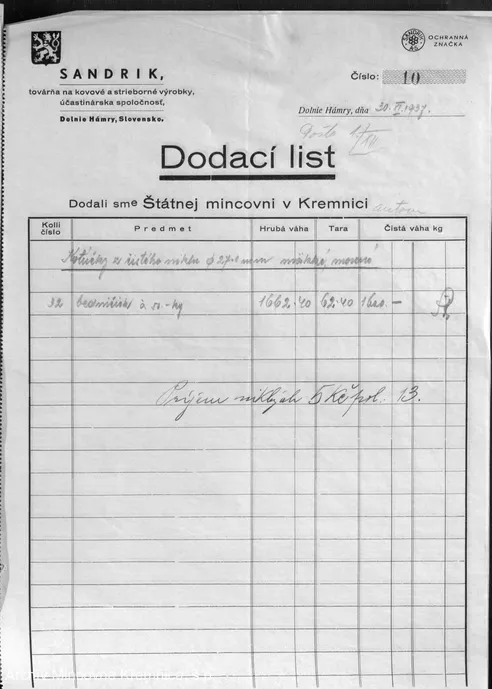 SANDRIK,
továrňa na kovové a strieborné výrobky,
účastinárska spoločnosť,
Dolnie Hámry, Slovensko.
SANDRIK
OCHRANNÁ
ZNAČKA
Číslo: 10
Dolnie Hámry, dňa 30. 1937.
Došlo
Dodací list
Dodali sme Štátnej mincovni v Kremnici autom
Kolli číslo Predmet Hrubá váha Tara Čistá váha kg
Kotúčky z čistého niklu mm mäkké, morené
32 bedničiek à 50.-kg 1662.40 62.40 1600.—
Príjem niklých 5 Kč pol. 13.